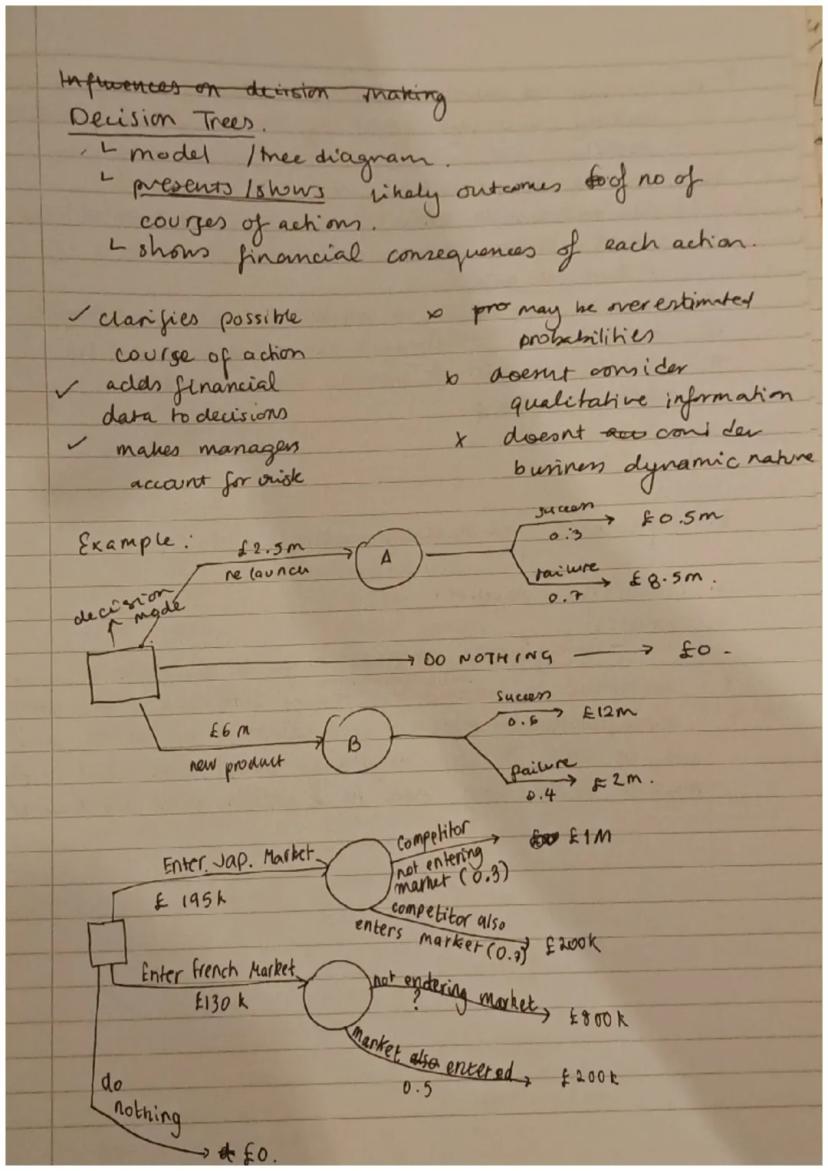 Influences on decision making
Decision Trees.
↳ model / tree diagram.
↳ presents / shows likely outcomes of no of
courses of actions.
↳ shows financial consequences of each action.
✓ clarifies possible
course of action
✓ adds financial
data to decisions
✓ makes managers
account for risk
x pro may be overestimated
probabilities
x doesnt consider
qualitative information
x doesnt consider
business dynamic nature
Example:
decision
made
£2.5m
relaunch
A
success
0.3
£0.5m
failure
0.7
£8.5m.
DO NOTHING
£0.
£6m
new product
B
success
£12m
failure
0.4
£2m.
Enter. Jap. Market
£195k
competitor
not entering
market (0.3)
£1M
competitor also
enters market (0.7)
£200k
Enter French Market
£130k
not entering market
?
£800k
market also entered
0.5
£200k
do
nothing
£0.